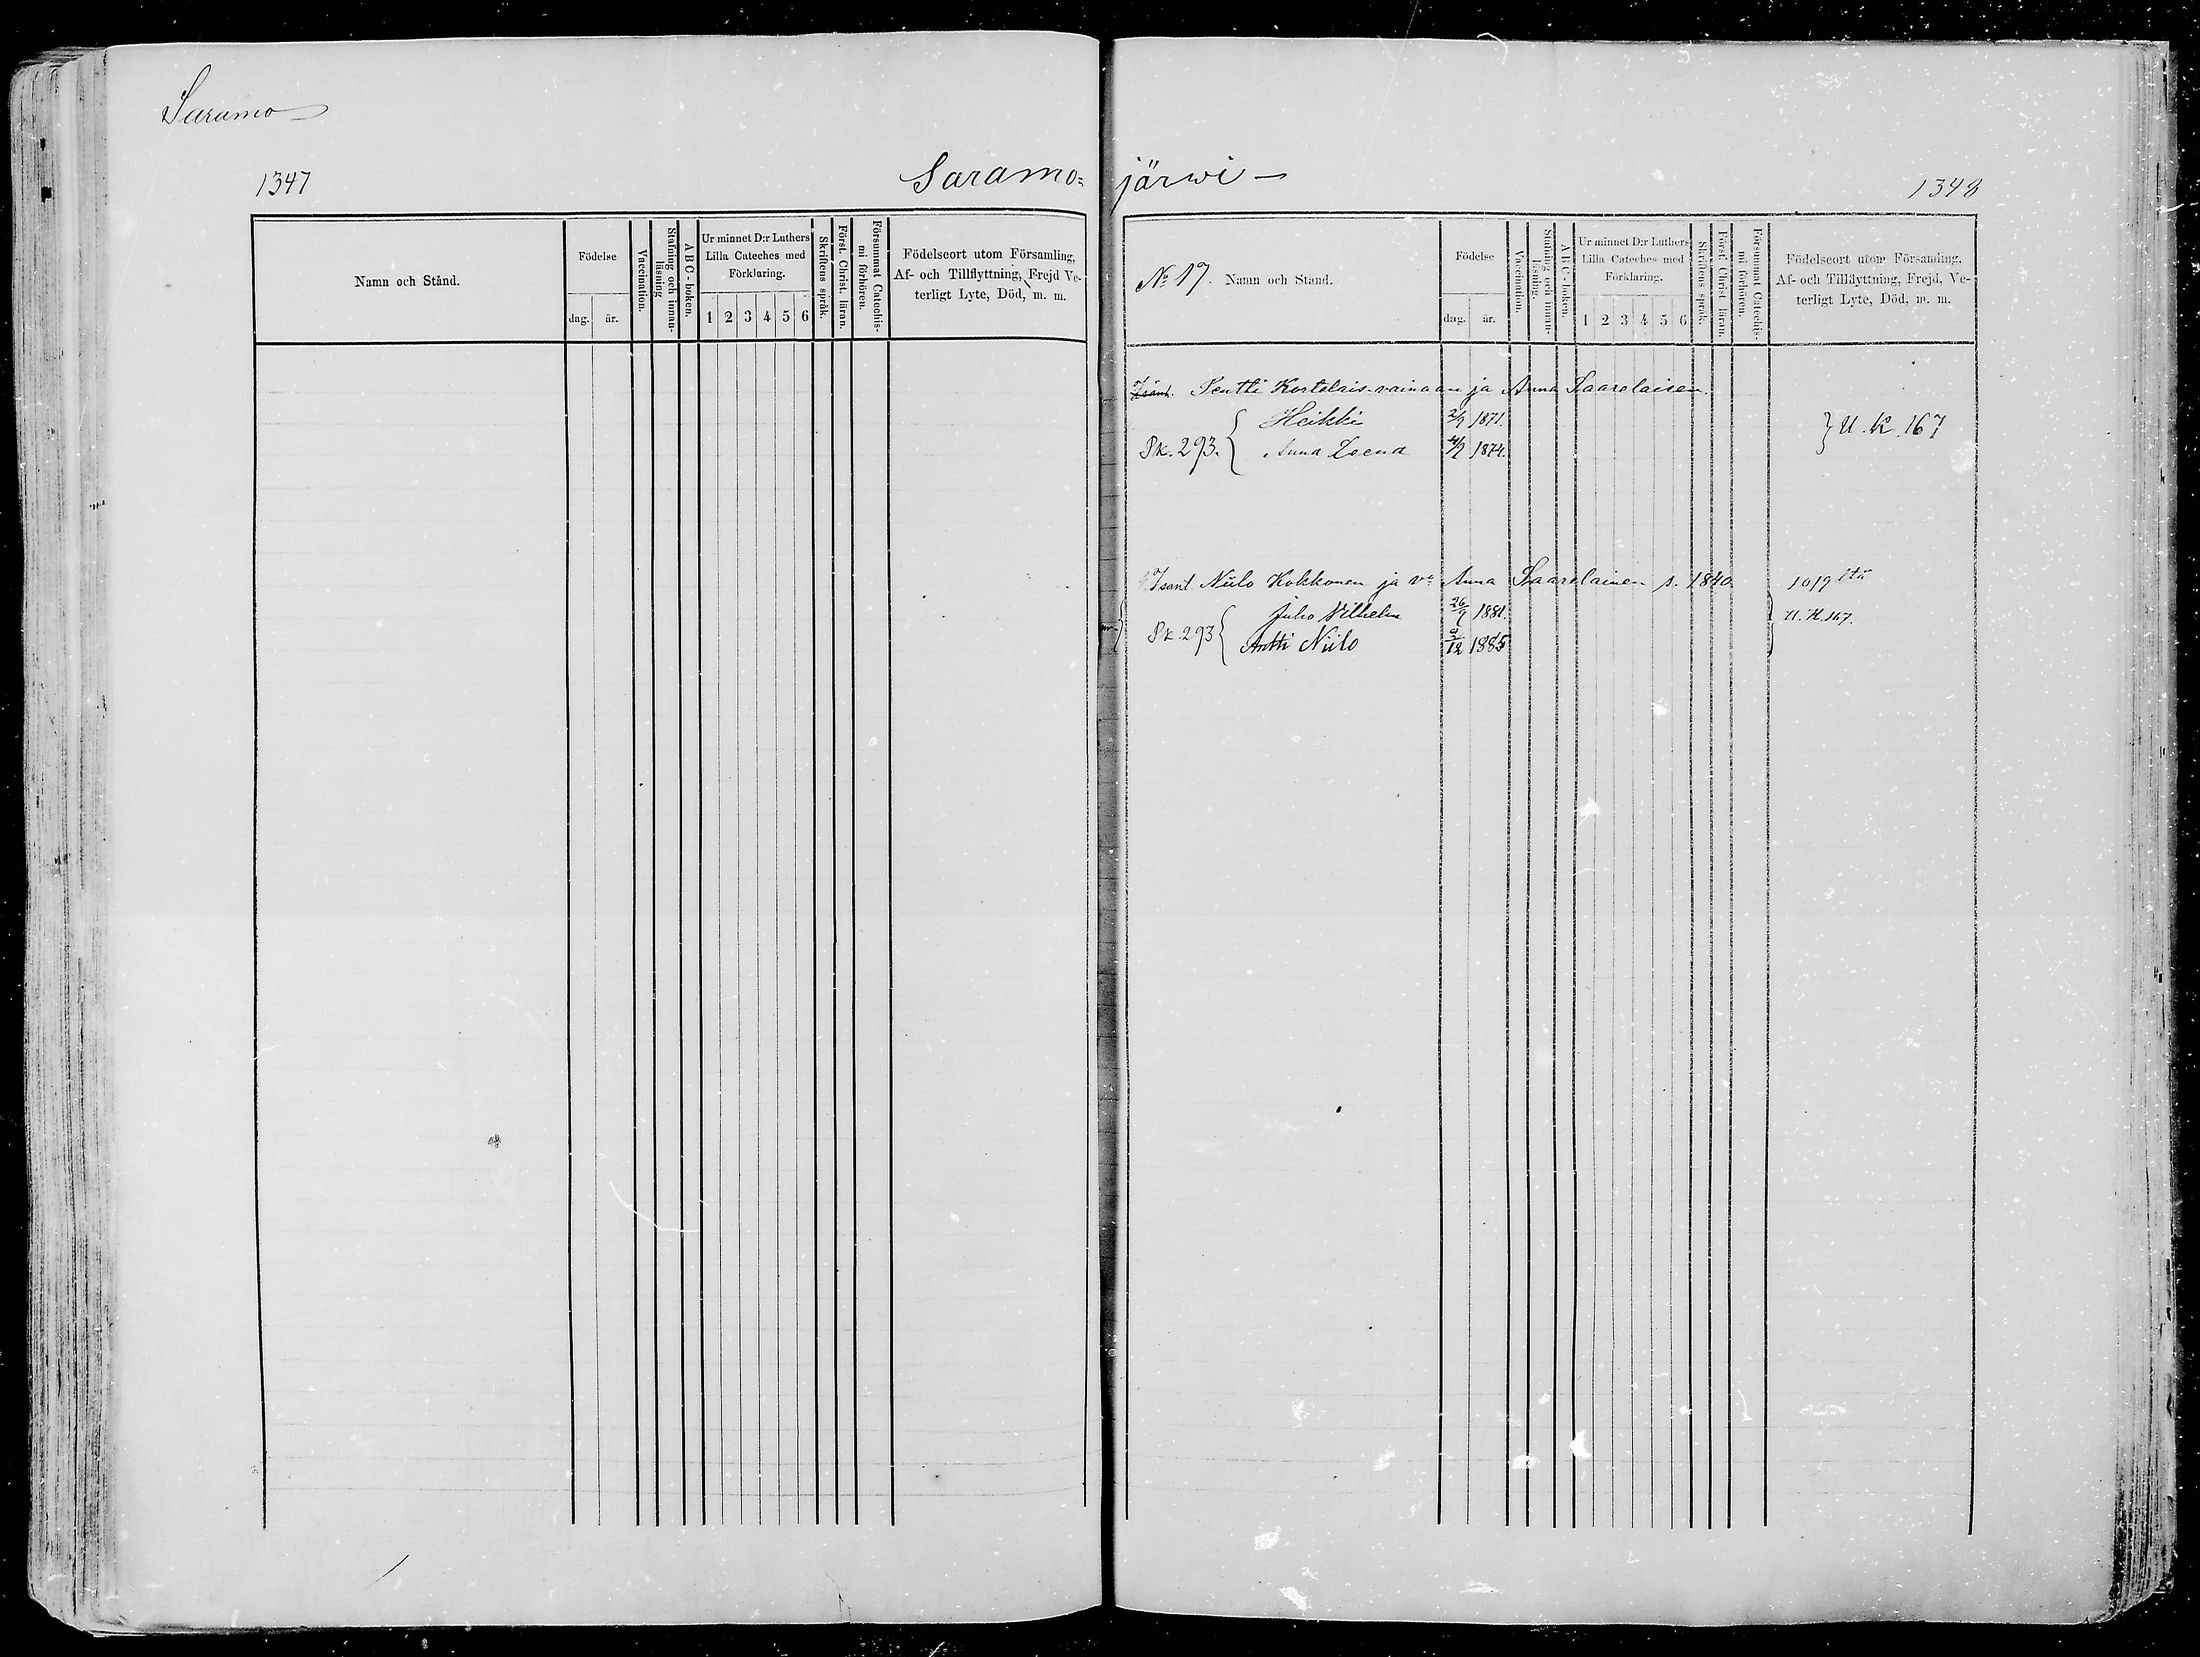 Saramo
1347
Saramo=
järwi
1348
Namn och Stånd.
Födelse
dag. år.
Vaccination.
Stafning och innan-
läsning
ABC-boken.
Ur minnet D:r Luthers
Lilla Cateches med
Förklaring.
1 2 3 4 5 6
Skriftens språk.
Först. Christ. läran.
Försummat Catechis-
mi förhören.
Födelseort utom Församling,
Af- och Tillflyttning, Frejd Ve-
terligt Lyte, Död, m. m.
No 17. Namn och Stånd.
Födelse
dag. år.
Vaccination.
Stafning och innan-
läsning.
ABC-boken.
Ur minnet D:r Luthers
Lilla Cateches med
Förklaring.
1 2 3 4 5 6
Skriftens språk.
Först. Christ. läran.
Försummat Catechis-
mi förhören.
Födelseort utom Församling,
Af- och Tillflyttning, Frejd, Ve-
terligt Lyte, Död, m. m.
Isänt. Pentti Kortelais-vainaan ja Anna Saarelaisen.
Heikki 2/9 1871.
Pk. 293. Anna Leena 4/9 1874. U. K. 167
Isänt Niilo Kokkonen ja vo Anna Saarelainen s. 1840. 1019 ltä
Juho Vilhelm 26/9 1881. U. K. 167.
Pk. 293 Antti Niilo 9/12 1885